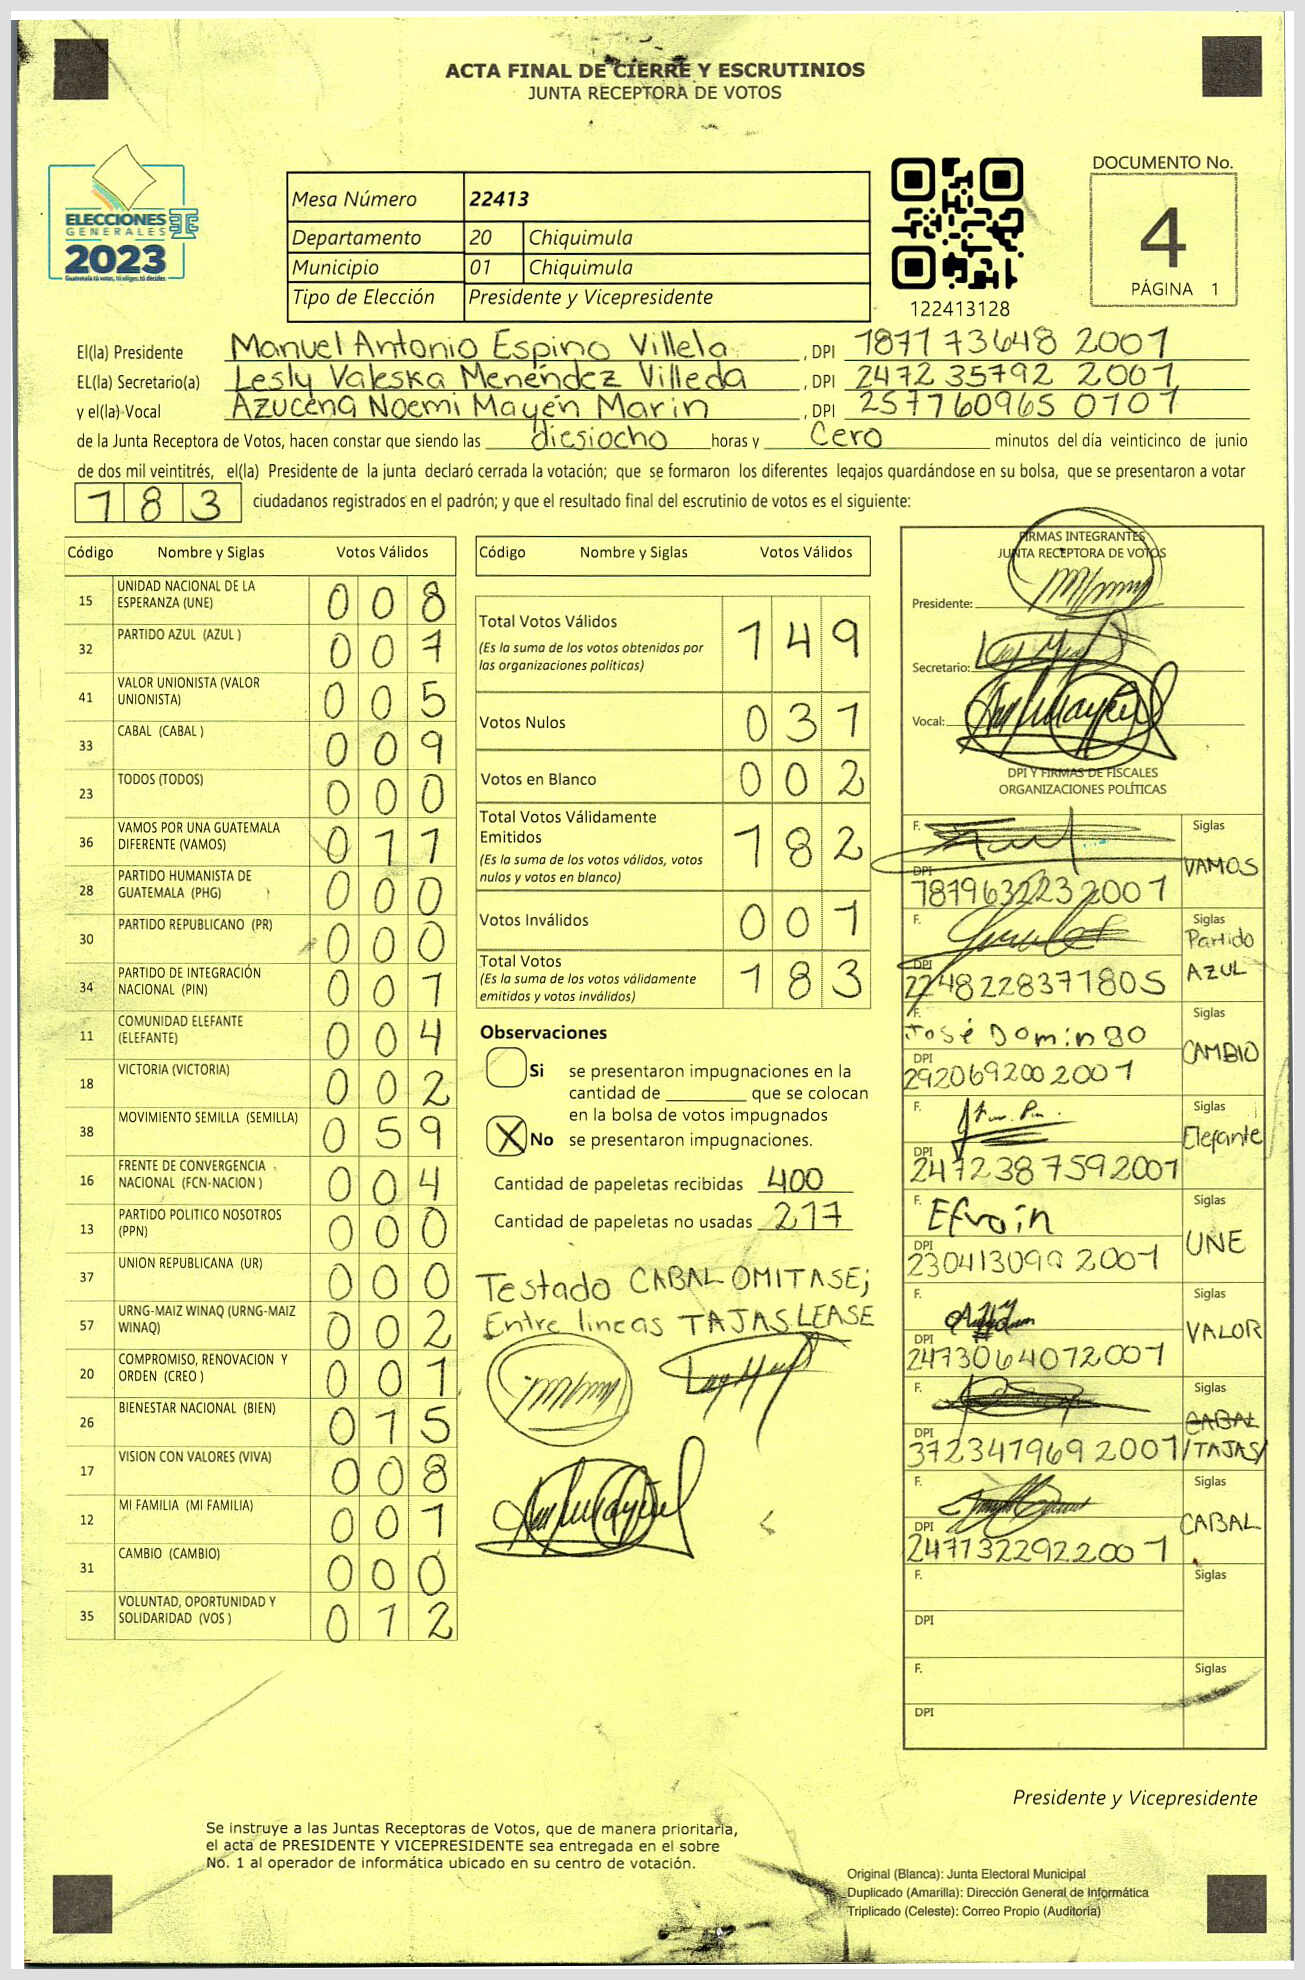 ACTA FINAL DE CIERRE Y ESCRUTINIOS
JUNTA RECEPTORA DE VOTOS
ELECCIONES
GENERALES
2023
Guatemala tú votas, tú eliges, tú decides
Mesa Número 22413
Departamento 20 Chiquimula
Municipio 01 Chiquimula
Tipo de Elección Presidente y Vicepresidente
122413128
DOCUMENTO No.
4
PÁGINA 1
El(la) Presidente Manuel Antonio Espino Villela, DPI 1871 73648 2001
EL(la) Secretario(a) Lesly Valeska Menéndez Villeda, DPI 2472 35792 2001
y el(la) Vocal Azucena Noemi Mayén Marin, DPI 257760965 0101
de la Junta Receptora de Votos, hacen constar que siendo las diesiocho horas y Cero minutos del día veinticinco de junio
de dos mil veintitrés, el(la) Presidente de la junta declaró cerrada la votación; que se formaron los diferentes legajos quardándose en su bolsa, que se presentaron a votar
183 ciudadanos registrados en el padrón; y que el resultado final del escrutinio de votos es el siguiente:
Código Nombre y Siglas Votos Válidos
15 UNIDAD NACIONAL DE LA ESPERANZA (UNE) 008
32 PARTIDO AZUL (AZUL ) 007
41 VALOR UNIONISTA (VALOR UNIONISTA) 005
33 CABAL (CABAL ) 009
23 TODOS (TODOS) 000
36 VAMOS POR UNA GUATEMALA DIFERENTE (VAMOS) 011
28 PARTIDO HUMANISTA DE GUATEMALA (PHG) 000
30 PARTIDO REPUBLICANO (PR) 000
34 PARTIDO DE INTEGRACIÓN NACIONAL (PIN) 001
11 COMUNIDAD ELEFANTE (ELEFANTE) 004
18 VICTORIA (VICTORIA) 002
38 MOVIMIENTO SEMILLA (SEMILLA) 059
16 FRENTE DE CONVERGENCIA NACIONAL (FCN-NACION ) 004
13 PARTIDO POLITICO NOSOTROS (PPN) 000
37 UNION REPUBLICANA (UR) 000
57 URNG-MAIZ WINAQ (URNG-MAIZ WINAQ) 002
20 COMPROMISO, RENOVACION Y ORDEN (CREO ) 001
26 BIENESTAR NACIONAL (BIEN) 015
17 VISION CON VALORES (VIVA) 008
12 MI FAMILIA (MI FAMILIA) 001
31 CAMBIO (CAMBIO) 000
35 VOLUNTAD, OPORTUNIDAD Y SOLIDARIDAD (VOS ) 012
Código Nombre y Siglas Votos Válidos
Total Votos Válidos 149
(Es la suma de los votos obtenidos por
las organizaciones políticas)
Votos Nulos 031
Votos en Blanco 002
Total Votos Válidamente
Emitidos 182
(Es la suma de los votos válidos, votos
nulos y votos en blanco)
Votos Inválidos 001
Total Votos 183
(Es la suma de los votos válidamente
emitidos y votos inválidos)
Observaciones
Si se presentaron impugnaciones en la
cantidad de ________ que se colocan
en la bolsa de votos impugnados
X No se presentaron impugnaciones.
Cantidad de papeletas recibidas 400
Cantidad de papeletas no usadas 217
Testado CABAL OMITASE;
Entre lineas TAJAS LEASE
FIRMAS INTEGRANTES
JUNTA RECEPTORA DE VOTOS
Presidente:
Secretario:
Vocal:
DPI Y FIRMAS DE FISCALES
ORGANIZACIONES POLÍTICAS
F. Siglas
VAMOS
DPI
1879632232001
F. Siglas
Partido
AZUL
DPI
2248228371805
F. Siglas
José Domingo
CAMBIO
DPI
2920692002001
F. Siglas
Elefante
DPI
2472387592001
F. Siglas
Efraín
UNE
DPI
F. Siglas
VALOR
DPI
2473064072001
F. Siglas
CABAL
DPI
3723479692001 /TAJAS/
F. Siglas
CABAL
DPI
2471322922001
F. Siglas
DPI
F. Siglas
DPI
Presidente y Vicepresidente
Se instruye a las Juntas Receptoras de Votos, que de manera prioritaria,
el acta de PRESIDENTE Y VICEPRESIDENTE sea entregada en el sobre
No. 1 al operador de informática ubicado en su centro de votación.
Original (Blanca): Junta Electoral Municipal
Duplicado (Amarilla): Dirección General de Informática
Triplicado (Celeste): Correo Propio (Auditoría)